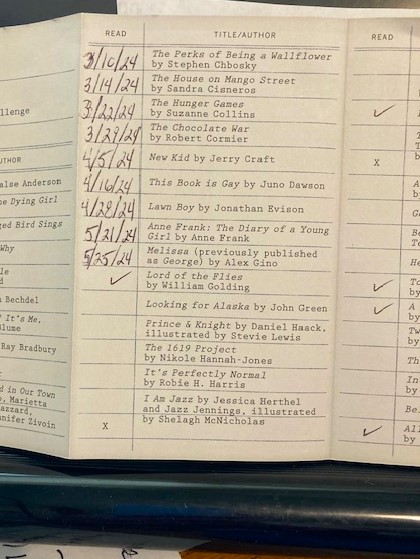 READ TITLE/AUTHOR READ
3/10/24 The Perks of Being a Wallflower
by Stephen Chbosky
3/14/24 The House on Mango Street
by Sandra Cisneros
3/22/24 The Hunger Games
by Suzanne Collins
3/29/24 The Chocolate War
by Robert Cormier
4/5/24 New Kid by Jerry Craft
4/16/24 This Book is Gay by Juno Dawson
4/28/24 Lawn Boy by Jonathan Evison
5/21/24 Anne Frank: The Diary of a Young
Girl by Anne Frank
5/25/24 Melissa (previously published
as George) by Alex Gino
✓ Lord of the Flies
by William Golding
Looking for Alaska by John Green
Prince & Knight by Daniel Haack,
illustrated by Stevie Lewis
The 1619 Project
by Nikole Hannah-Jones
It's Perfectly Normal
by Robie H. Harris
I Am Jazz by Jessica Herthel
and Jazz Jennings, illustrated
X by Shelagh McNicholas
Anderson
Dying Girl
Bird Sings
Why
Bechdel
It's Me,
Ray Bradbury
in Our Town
Marietta
Zivoin
✓
X
✓
✓
✓